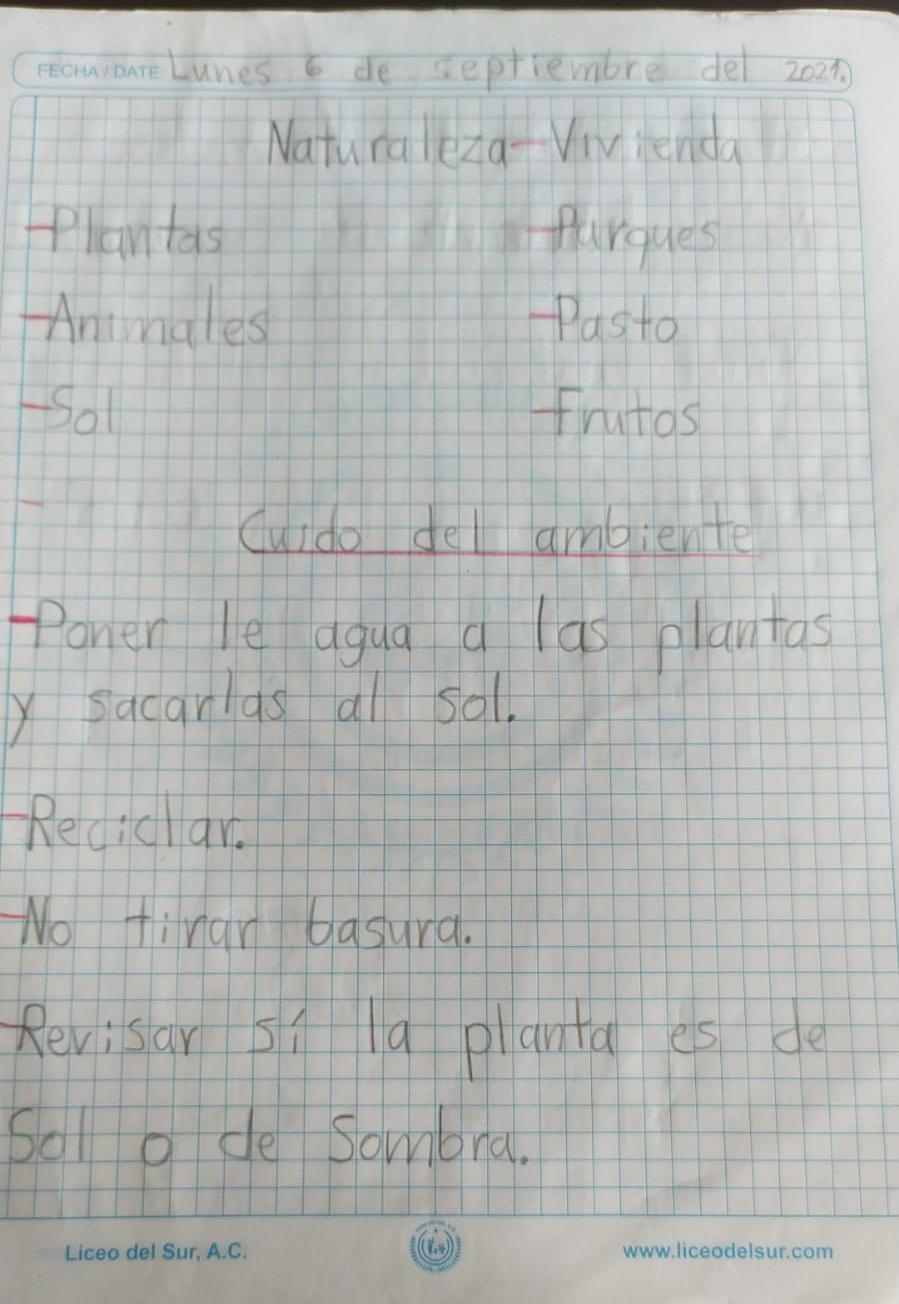 FECHA / DATE Lunes 6 de septiembre del 2021.
Naturaleza-Vivienda
-Plantas -Parques
-Animales -Pasto
-Sol -Frutos
-
Cuido del ambiente
-Poner le agua a las plantas
y sacarlas al sol.
-Reciclar.
-No tirar basura.
-Revisar sí la planta es de
Sol o de Sombra.
Liceo del Sur, A.C. www.liceodelsur.com